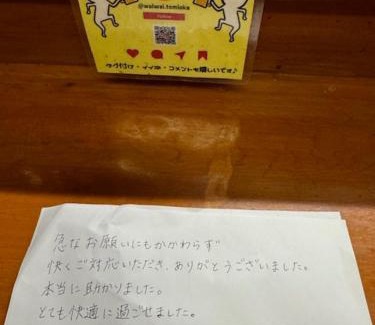 @waiwai.tomioka
Follow
タグ付け・イイネ・コメントも嬉しいです♪
急なお願いにもかかわらず
快くご対応いただき、ありがとうございました。
本当に助かりました。
とても快適に過ごせました。